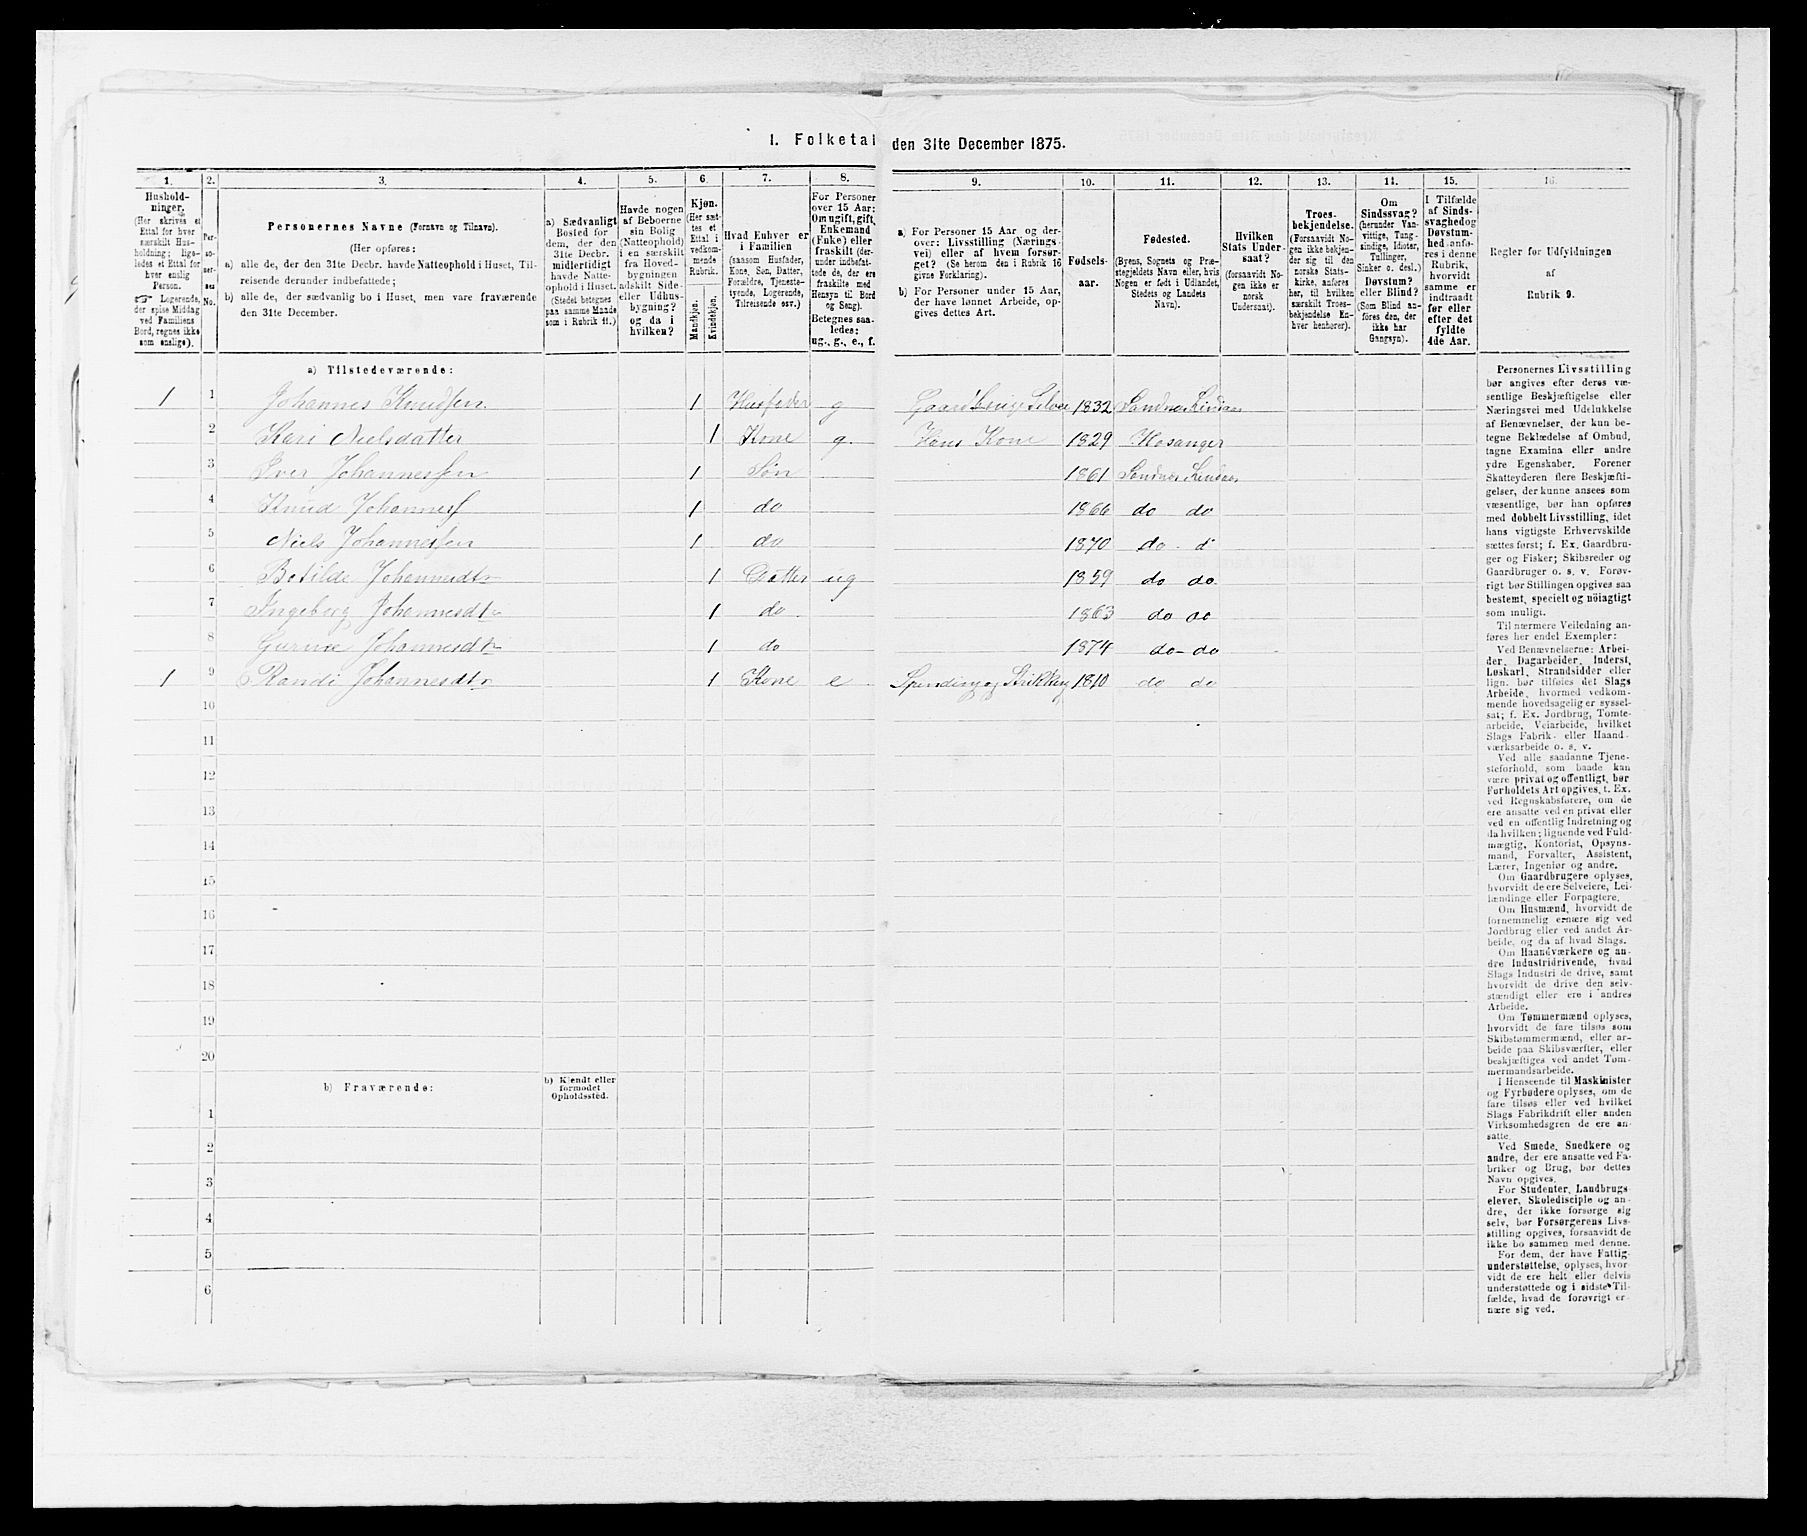 1. Folketal den 31te December 1875.
1. 2. 3. 4. 5. 6. 7. 8. 9. 10. 11. 12. 13. 14. 15. 16.
Hushold-
ninger.
(Her skrives et
Ettal for hver
særskilt Hus-
holdning; lige-
ledes et Ettal for
hver enslig
Person.
☞ Logerende,
der spise Middag
ved Familiens
Bord, regnes ikke
som enslige).
Per-
so-
ner-
nes
No.
Personernes Navne (Fornavn og Tilnavn).
(Her opføres:
a) alle de, der den 31te Decbr. havde Natteophold i Huset, Til-
reisende derunder indbefattede;
b) alle de, der sædvanlig bo i Huset, men vare fraværende
den 31te December.
a) Sædvanligt
Bosted for
dem, der den
31te Decbr.
midlertidigt
havde Natte-
ophold i Huset.
(Stedet betegnes
paa samme Maade
som i Rubrik 11.)
Havde nogen
af Beboerne
sin Bolig
(Natteophold)
i en særskilt
fra Hoved-
bygningen
adskilt Side-
eller Udhus-
bygning?
og da i
hvilken?
Kjøn.
(Her sæt-
tes et
Ettal i
vedkom-
mende
Rubrik.
Mandkjøn.
Kvindekjøn.
Hvad Enhver er
i Familien
(saasom Husfader,
Kone, Søn, Datter,
Forældre, Tjeneste-
tyende, Logerende,
Tilreisende osv.)
For Personer
over 15 Aar:
Om ugift, gift,
Enkemand
(Enke) eller
fraskilt (der-
under indbefat-
tede de, der ere
fraskilte med
Hensyn til Bord
og Seng).
Betegnes saa-
ledes:
ug., g., e., f.
a) For Personer 15 Aar og der-
over: Livsstilling (Nærings-
vei) eller af hvem forsør-
get? (Se herom den i Rubrik 16
givne Forklaring).
b) For Personer under 15 Aar,
der have lønnet Arbeide, op-
gives dettes Art.
Fødsels-
aar.
Fødested.
(Byens, Sognets og Præ-
stegjeldets Navn eller, hvis
Nogen er født i Udlandet,
Stedets og Landets
Navn).
Hvilken
Stats Under-
saat?
(forsaavidt No-
gen ikke er
norsk
Undersaat).
Troes-
bekjendelse.
(Forsaavidt No-
gen ikke bekjen-
der sig til den
norske Stats-
kirke, anføres
her, til hvilken
særskilt Troes-
bekjendelse En-
hver henhører).
Om
Sindssvag?
(herunder Van-
vittige, Tung-
sindige, Idioter,
Tullinger,
Sinker o. desl.)
Døvstum?
eller Blind?
(Som Blind an-
føres den, der
ikke har
Gangsyn).
I Tilfælde
af Sinds-
svaghed og
Døvstum-
hed anfø-
res i denne
Rubrik,
hvorvidt
samme er
indtraadt
før eller
efter det
fyldte
4de Aar.
Regler for Udfyldningen
af
Rubrik 9.
a) Tilstedeværende:
1 1 Johannes Knudsen 1 Husfader g Gaardbruger Selveier 1832 Sandnes Lindaas
2 Kari Nielsdatter 1 Kone g. Hans Kone 1829 Hosanger
3 Iver Johannessen 1 Søn 1861 Sandnes Lindaas
4 Knud Johanness 1 do 1866 do do
5 Niels Johannessen 1 do 1870 do d
6 Botilde Johannesdtr 1 Datter ug 1859 do do
7 Ingeborg Johannesdtr 1 do 1863 do do
8 Johannesdtr 1 do 1874 do do
1 9 Randi Johannesdtr 1 Kone e Spinding og Strikking 1810 do do
10
11
12
13
14
15
16
17
18
19
20
b) Fraværende: b) Kjendt eller
formodet
Opholdssted.
1
2
3
4
5
6
Personernes Livsstilling
bør angives efter deres væ-
sentlige Beskjæftigelse eller
Næringsvei med Udelukkelse
af Benævnelser, der kun be-
tegne Beklædelse af Ombud,
tagne Examina eller andre
ydre Egenskaber. Forener
Skatteyderen flere Beskjæfti-
gelser, der kunne ansees som
væsentlige, bør han opføres
med dobbelt Livsstilling, idet
hans vigtigste Erhvervskilde
sættes først; f. Ex. Gaardbru-
ger og Fisker; Skibsreder og
Gaardbruger o. s. v. Forøv-
rigt bør Stillingen opgives saa
bestemt, specielt og nöiagtigt
som muligt.
Til nærmere Veiledning an-
føres her endel Exempler:
Ved Benævnelserne: Arbei-
der, Dagarbeider, Inderst,
Løskarl, Strandsidder eller
lign. bør tilføies det Slags
Arbeide, hvormed vedkom-
mende hovedsagelig er syssel-
sat; f. Ex. Jordbrug, Tomte-
arbeide, Veiarbeide, hvilket
Slags Fabrik- eller Haand-
værksarbeide o. s. v.
Ved alle saadanne Tjene-
steforhold, som baade kan
være privat og offentligt, bør
Forholdets Art opgives, f. Ex.
ved Regnskabsførere, om de
ere ansatte ved en privat eller
ved en offentlig Indretning og
da hvilken; lignende ved Fuld-
mægtig, Kontorist, Opsyns-
mand, Forvalter, Assistent,
Lærer, Ingeniør og andre.
Om Gaardbrugere oplyses,
hvorvidt de ere Selveiere, Lei-
lændinge eller Forpagtere.
Om Husmænd, hvorvidt de
fornemmelig ernære sig ved
Jordbrug eller ved andet Ar-
beide, og da af hvad Slags.
Om Haandværkere og an-
dre Industridrivende, hvad
Slags Industri de drive, samt
hvorvidt de drive den selv-
stændigt eller ere i andres
Arbeide.
Om Tømmermænd oplyses,
hvorvidt de fare tilsøs som
Skibstømmermænd, eller ar-
beide paa Skibsværfter, eller
beskjæftiges ved andet Tøm-
mermandsarbeide.
I Henseende til Maskinister
og Fyrbødere oplyses, om de
fare tilsøs eller ved hvilket
Slags Fabrikdrift eller anden
Virksomhedsgren de ere an-
satte.
Ved Smede, Snedkere og
andre, der ere ansatte ved Fa-
briker og Brug, bør dettes
Navn opgives.
For Studenter, Landbrugs-
elever, Skoledisciple og an-
dre, der ikke forsørge sig
selv, bør Forsørgerens Livs-
stilling opgives, forsaavidt de
ikke bo sammen med denne.
For dem, der have Fattig-
understøttelse, oplyses, hvor-
vidt de ere helt eller delvis
understøttede og i sidste Til-
fælde, hvad de forøvrigt er-
nære sig ved.